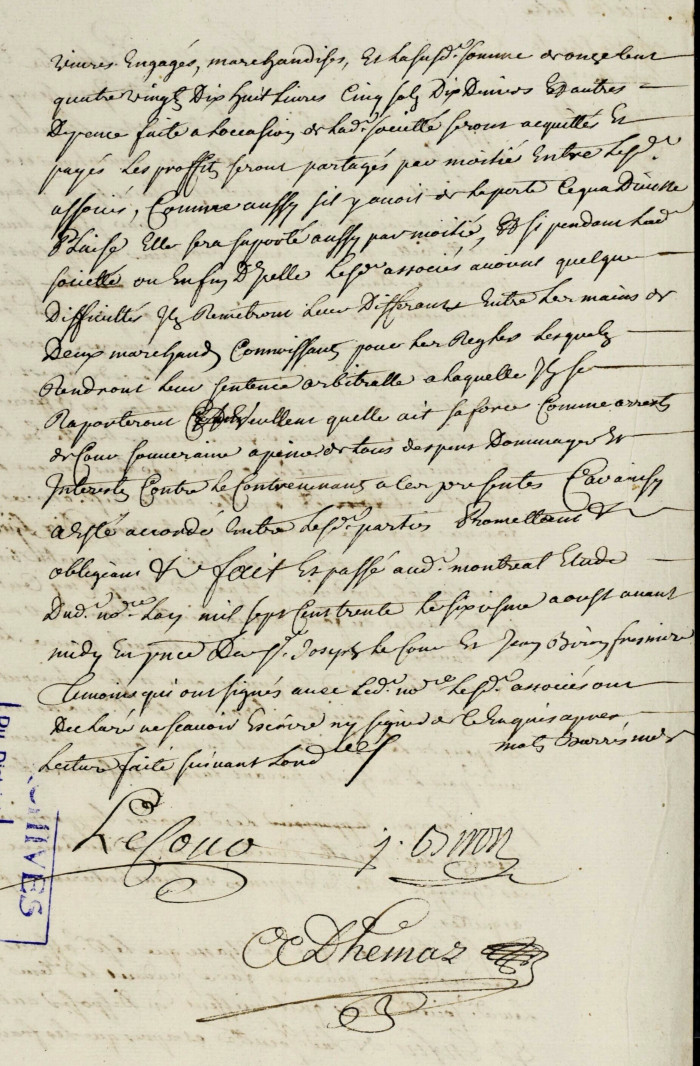 vivres Engagés, marchandises, Et la susd.e somme de onze cent
quatre vingt Dix huit Livres Cinq sols Dix Deniers Et autres
Depence faite a loccasion de lad.e societté seront acquittés Et
payés Les proffits seront partagés par moitié Entre les d.
associés, Comme aussy sil y avoit de la perte Ce qua Dieu ne
Plaise Elle sera suporté aussy par moitié, Et si pendant lad.
societté ou En fin D'Icelle les d. associés avoient quelque
Difficultés Ils Remetront leur Differant Entre les mains de
Deux marchands Connoissants pour les Regler Lesquels
Rendront leur sentence arbitralle a laquelle Ils se
Raporteront veullent quelle ait sa force Comme arrests
de Cour souveraine a peine de tous despens Dommages Et
Interests Contre le Contrevenant a les presentes Car ainsy
a Esté accordé Entre les d. parties Promettant &
obligeant &c fait Et passé aud. montreal Etude
Dud. no.re Lan mil sept Cent trente le sixiesme aoust avant
midy En pnce Du Sr. Joseph le Cour Et Jean Biron
Temoins qui ont signés avec led. no.re les d. associés ont
Declaré ne scavoir Escrire ny signer de ce Enquis apres
Lecture faite suivant Lord
mots Barrés nuls
LeCour
j. Biron
Adhemar